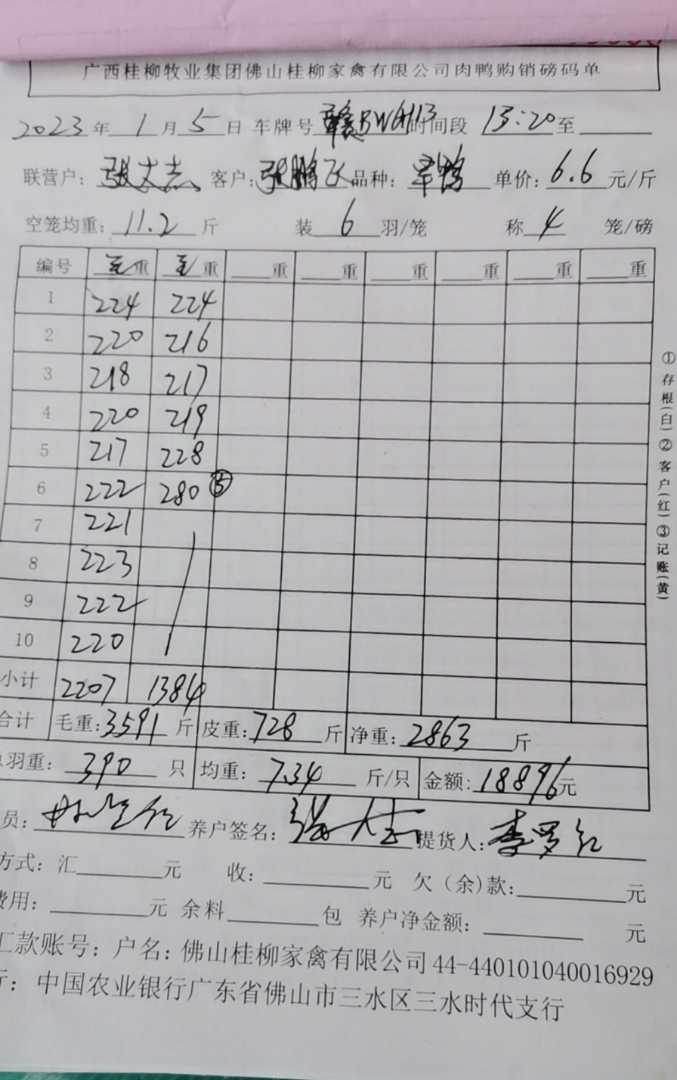 广西桂柳牧业集团佛山桂柳家禽有限公司肉鸭购销磅码单
2023年1月5日 车牌号 赣BW6113 时间段 13:20至
联营户: 张大志 客户: 张鹏飞 品种: 单价: 6.6元/斤
空笼均重: 11.2斤 装6羽/笼 称4笼/磅
编号 毛重 毛重 重 重 重 重 重 重
1 224 224
2 220 216
3 218 217
4 220 219
5 217 228
6 222 280 ⑤
7 221
8 223
9 222
10 220
小计 2207 1384
合计 毛重:3591斤 皮重:728斤 净重:2863斤
羽重:390只 均重:7.34斤/只 金额:18896元
员: 养户签名: 张大志 提货人:
方式:汇 元 收: 元 欠(余)款: 元
费用: 元 余料 包 养户净金额: 元
汇款账号:户名:佛山桂柳家禽有限公司 44-440101040016929
行:中国农业银行广东省佛山市三水区三水时代支行
①存根(白)②客户(红)③记账(黄)